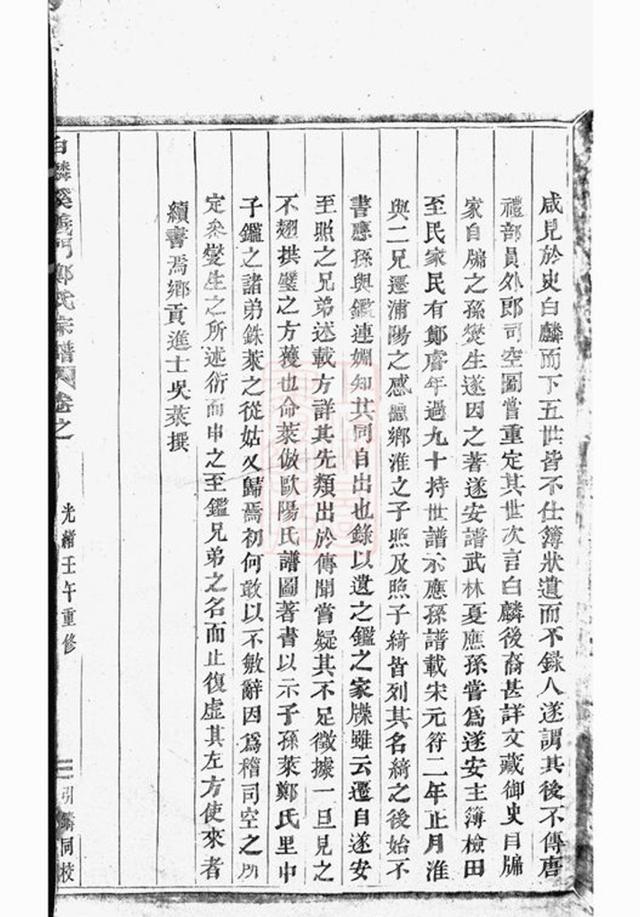 咸見於史白麟而下五世皆不仕簿狀遺而不錄人遂謂其後不傳唐
禮部員外郎司空圖嘗重定其世次言白麟後裔甚詳文藏御史自牖
家自牖之孫爕生遂因之著遂安譜武林夏應孫嘗爲遂安主簿檢田
至民家民有鄭睿年過九十持世譜示應孫譜載宋元符二年正月淮
與二兄遷浦陽之感德鄉淮之子照及照子綺皆列其名綺之後始不
書應孫與鑑連姻知其同自出也錄以遺之鑑之家牒雖云遷自遂安
至照之兄弟述載方詳其先類出於傳聞嘗疑其不足徵據一旦見之
不翅拱璧之方獲也命萊倣歐陽氏譜圖著書以示子孫萊鄭氏里中
子鑑之諸弟銖萊之從姑又歸焉初何敢以不敏辭因爲稽司空之所
定叅爕生之所述衍而申之至鑑兄弟之名而止復虛其左方使來者
續書焉鄉貢進士吳萊撰
白麟溪義門鄭氏宗譜 卷之
光緒壬午重修
引 麟同校